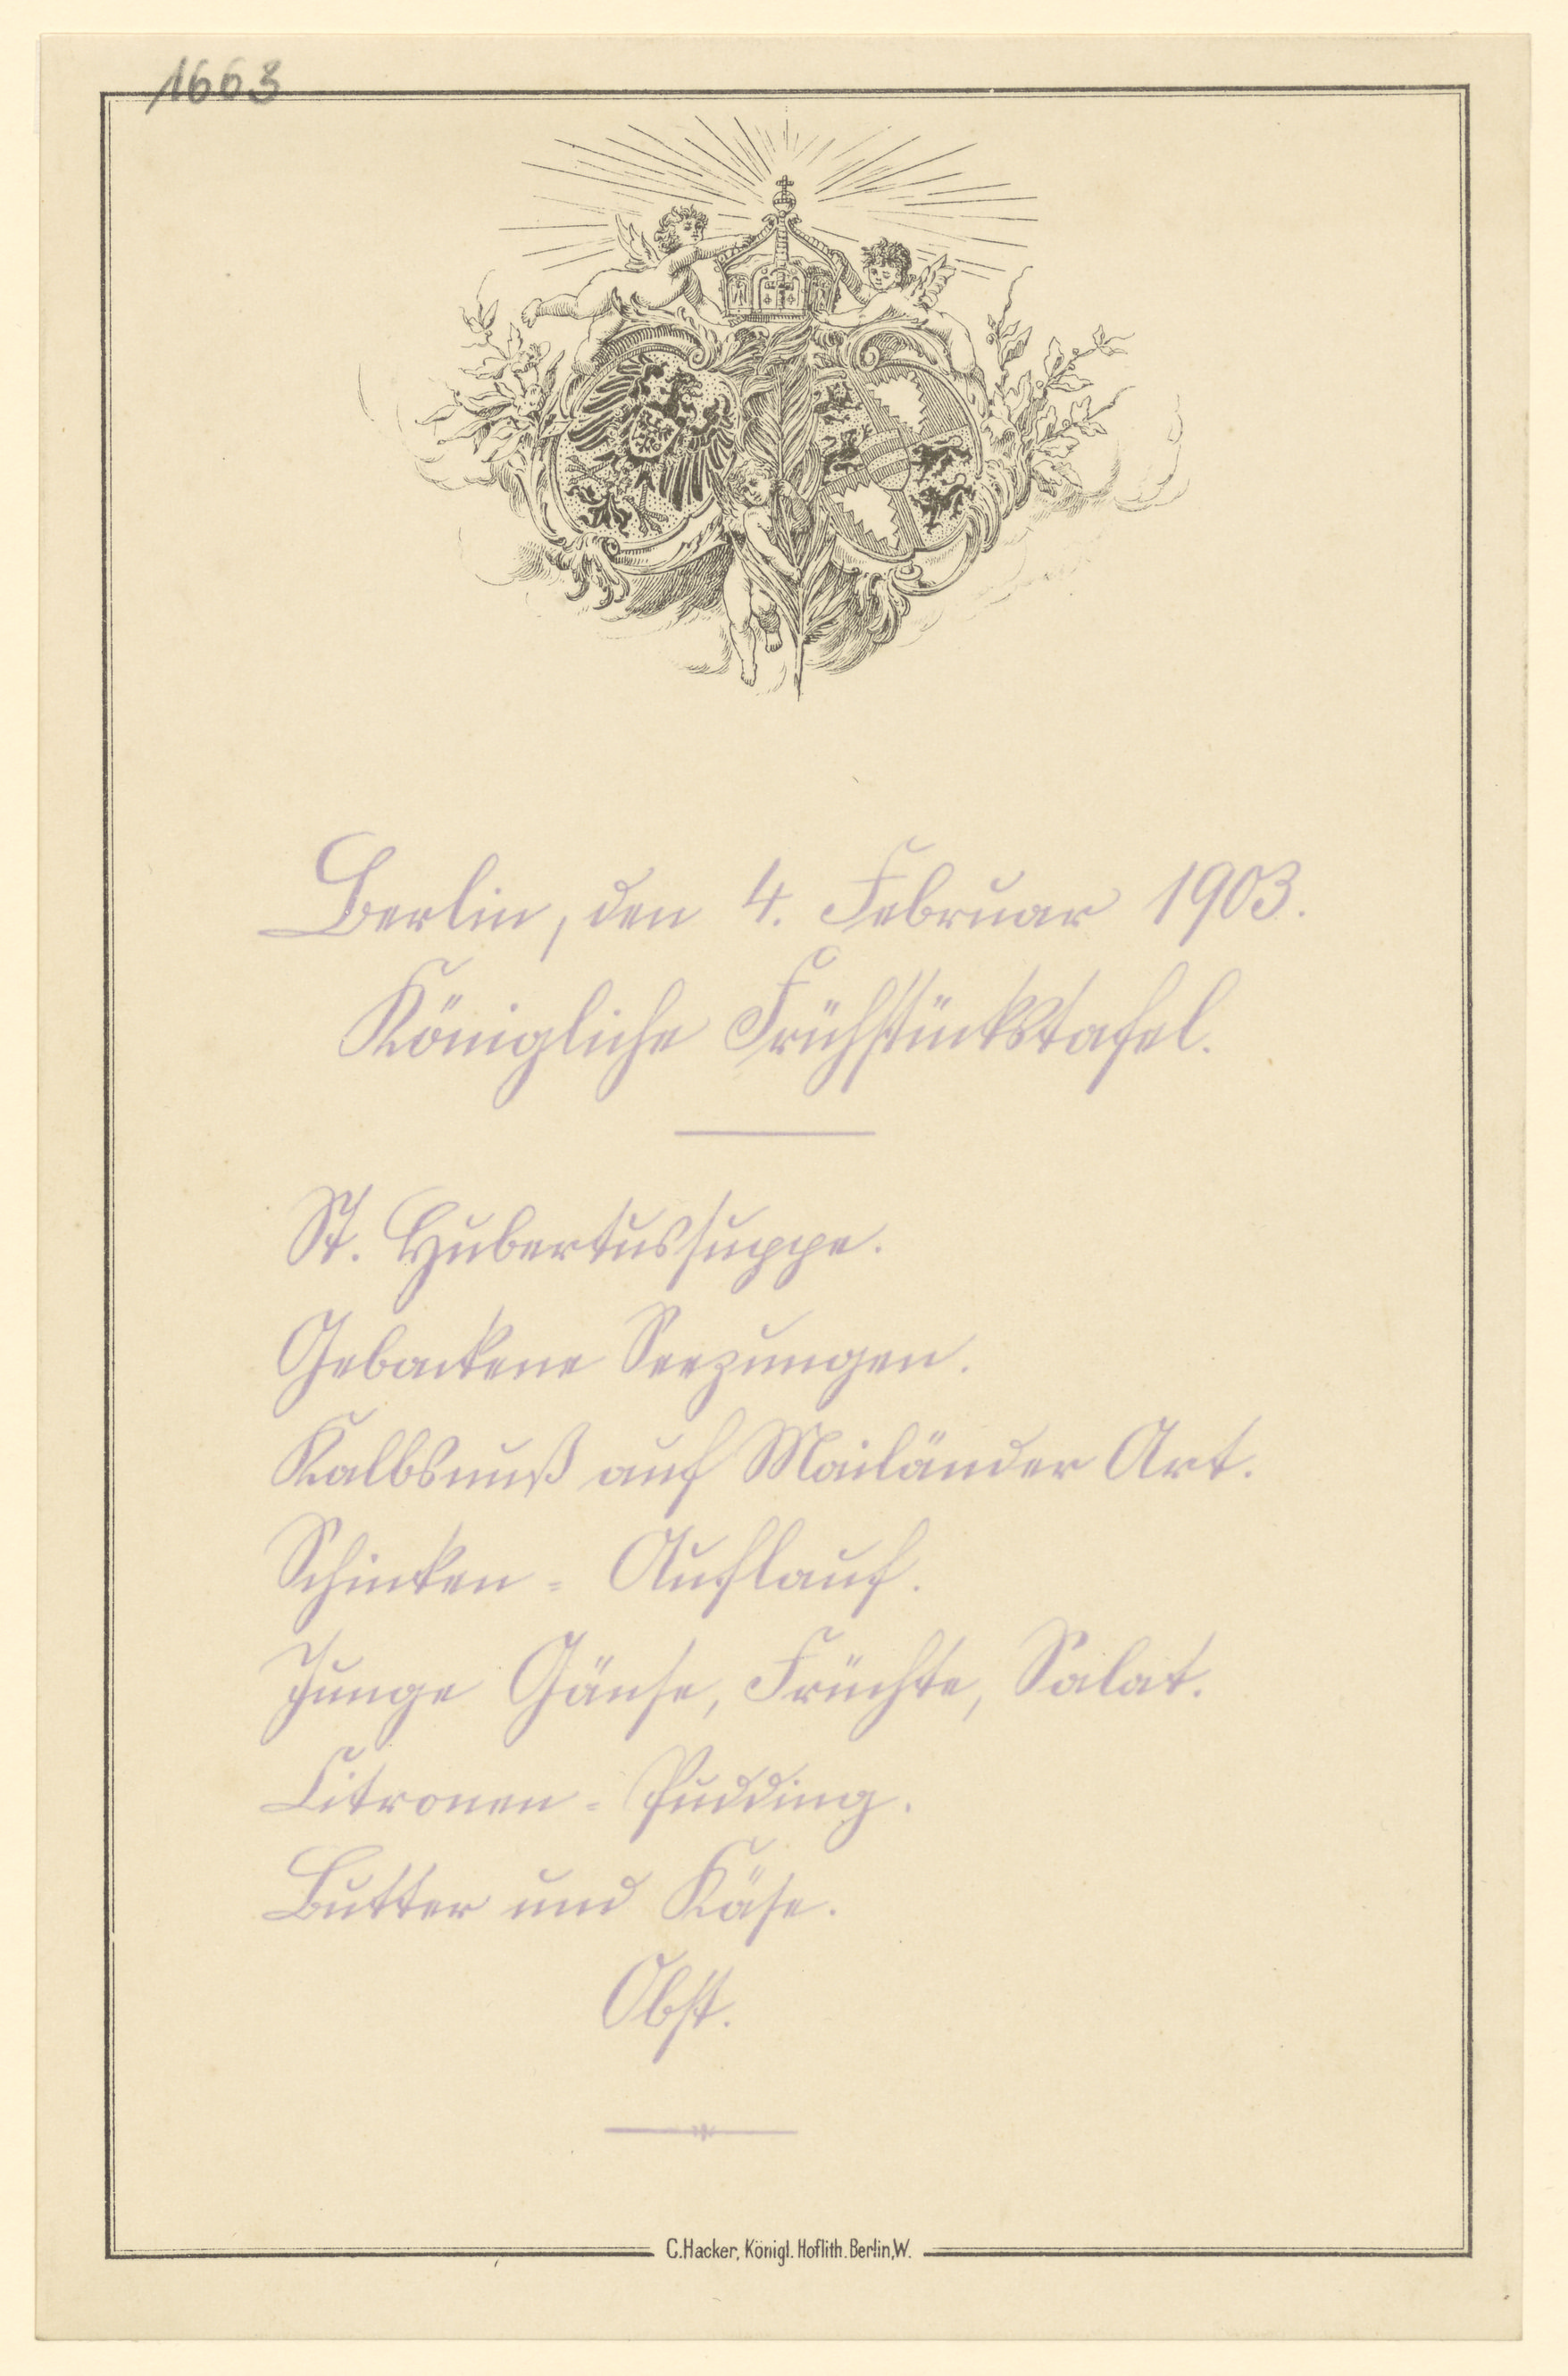 1663
Berlin, den 4. Februar 1903.
Königliche Frühstückstafel.
St. Hubertussuppe.
Gebackene Seezungen.
Kalbsnuß auf Mailänder Art.
Schinken = Auflauf.
Junge Gänse, Früchte, Salat.
Citronen = Pudding.
Butter und Käse.
Obst.
C.Hacker, Königl. Hoflith. Berlin,W.